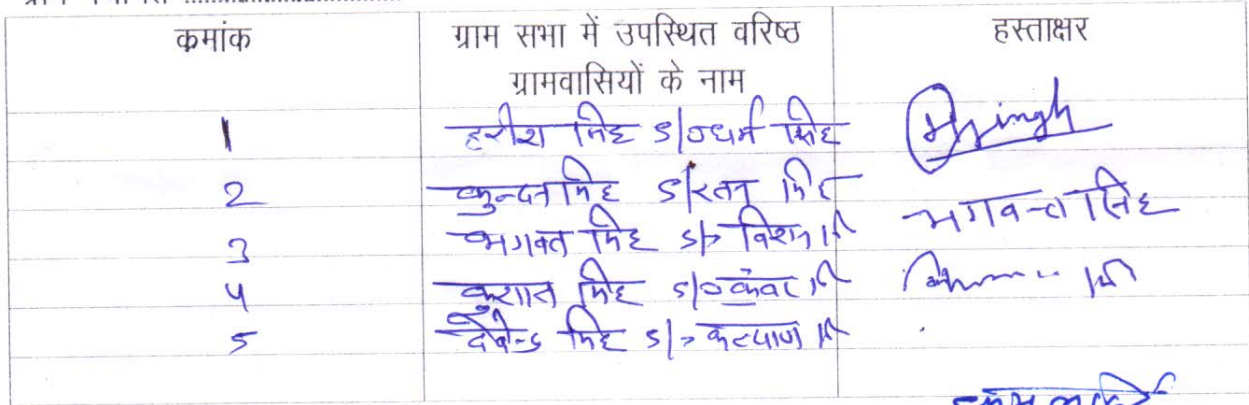 कमांक ग्राम सभा में उपस्थित वरिष्ठ हस्ताक्षर
ग्रामवासियों के नाम
1 हरीश सिंह s/o धर्म सिंह Singh
2 कुन्दन सिंह s/ रतन सिंह
3 भगवत सिंह s/o विशन सिं भगवन्त सिंह
4 कुशाल सिंह s/o कुंवर सिं
5 देवेन्द्र सिंह s/o कल्याण सिं